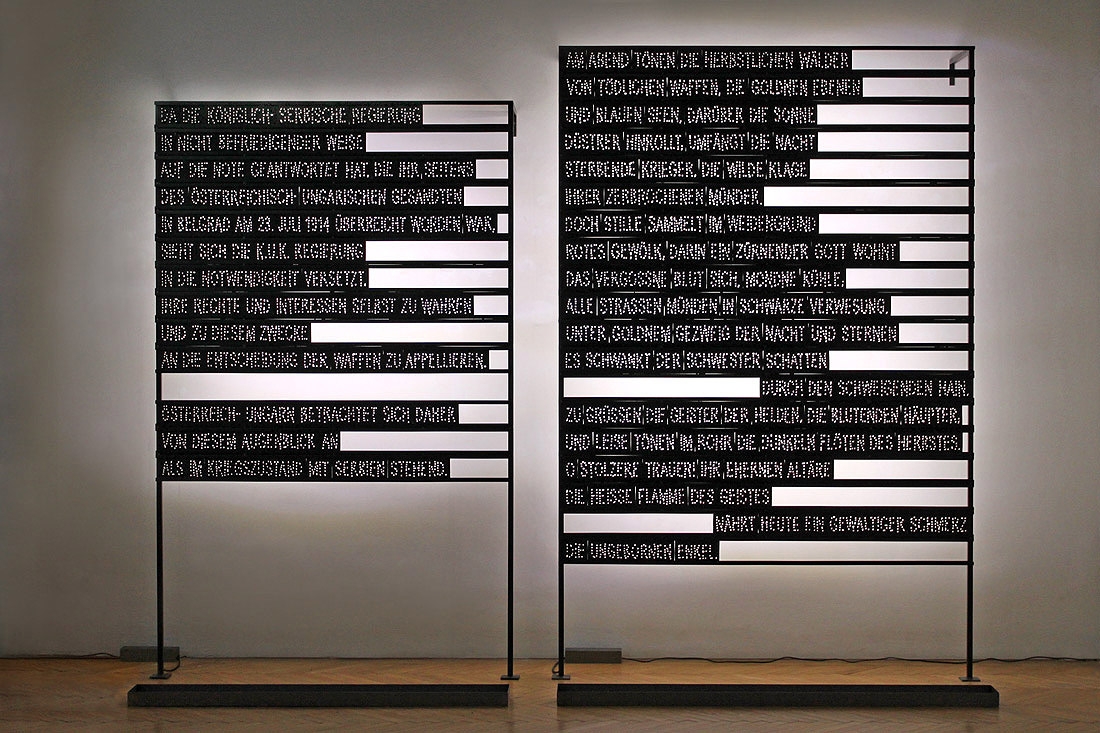 DA DIE KÖNIGLICH- SERBISCHE REGIERUNG
IN NICHT BEFRIEDIGENDER WEISE
AUF DIE NOTE GEANTWORTET HAT, DIE IHR SEITENS
DES ÖSTERREICHISCH- UNGARISCHEN GESANDTEN
IN BELGRAD AM 23. JULI 1914 ÜBERREICHT WORDEN WAR,
SIEHT SICH DIE K.U.K. REGIERUNG
IN DIE NOTWENDIGKEIT VERSETZT,
IHRE RECHTE UND INTERESSEN SELBST ZU WAHREN
UND ZU DIESEM ZWECKE
AN DIE ENTSCHEIDUNG DER WAFFEN ZU APPELLIEREN.
ÖSTERREICH- UNGARN BETRACHTET SICH DAHER
VON DIESEM AUGENBLICK AN
ALS IM KRIEGSZUSTAND MIT SERBIEN STEHEND.
AM ABEND TÖNEN DIE HERBSTLICHEN WÄLDER
VON TÖDLICHEN WAFFEN, DIE GOLDNEN EBENEN
UND BLAUEN SEEN, DARÜBER DIE SONNE
DÜSTRER HINROLLT, UMFÄNGT DIE NACHT
STERBENDE KRIEGER, DIE WILDE KLAGE
IHRER ZERBROCHENEN MÜNDER.
DOCH STILLE SAMMELT IM WEIDENGRUND
ROTES GEWÖLK, DARIN EIN ZÜRNENDER GOTT WOHNT
DAS VERGOSSNE BLUT SICH, MONDNE KÜHLE,
ALLE STRASSEN MÜNDEN IN SCHWARZE VERWESUNG.
UNTER GOLDNEM GEZWEIG DER NACHT UND STERNEN
ES SCHWANKT DER SCHWESTER SCHATTEN
DURCH DEN SCHWEIGENDEN HAIN
ZU GRÜSSEN DIE GEISTER DER HELDEN, DIE BLUTENDEN HÄUPTER,
UND LEISE TÖNEN IM ROHR DIE DUNKELN FLÖTEN DES HERBSTES.
O STOLZERE TRAUER! IHR EHERNEN ALTÄRE
DIE HEISSE FLAMME DES GEISTES
NÄHRT HEUTE EIN GEWALTIGER SCHMERZ
DIE UNGEBORNEN ENKEL.